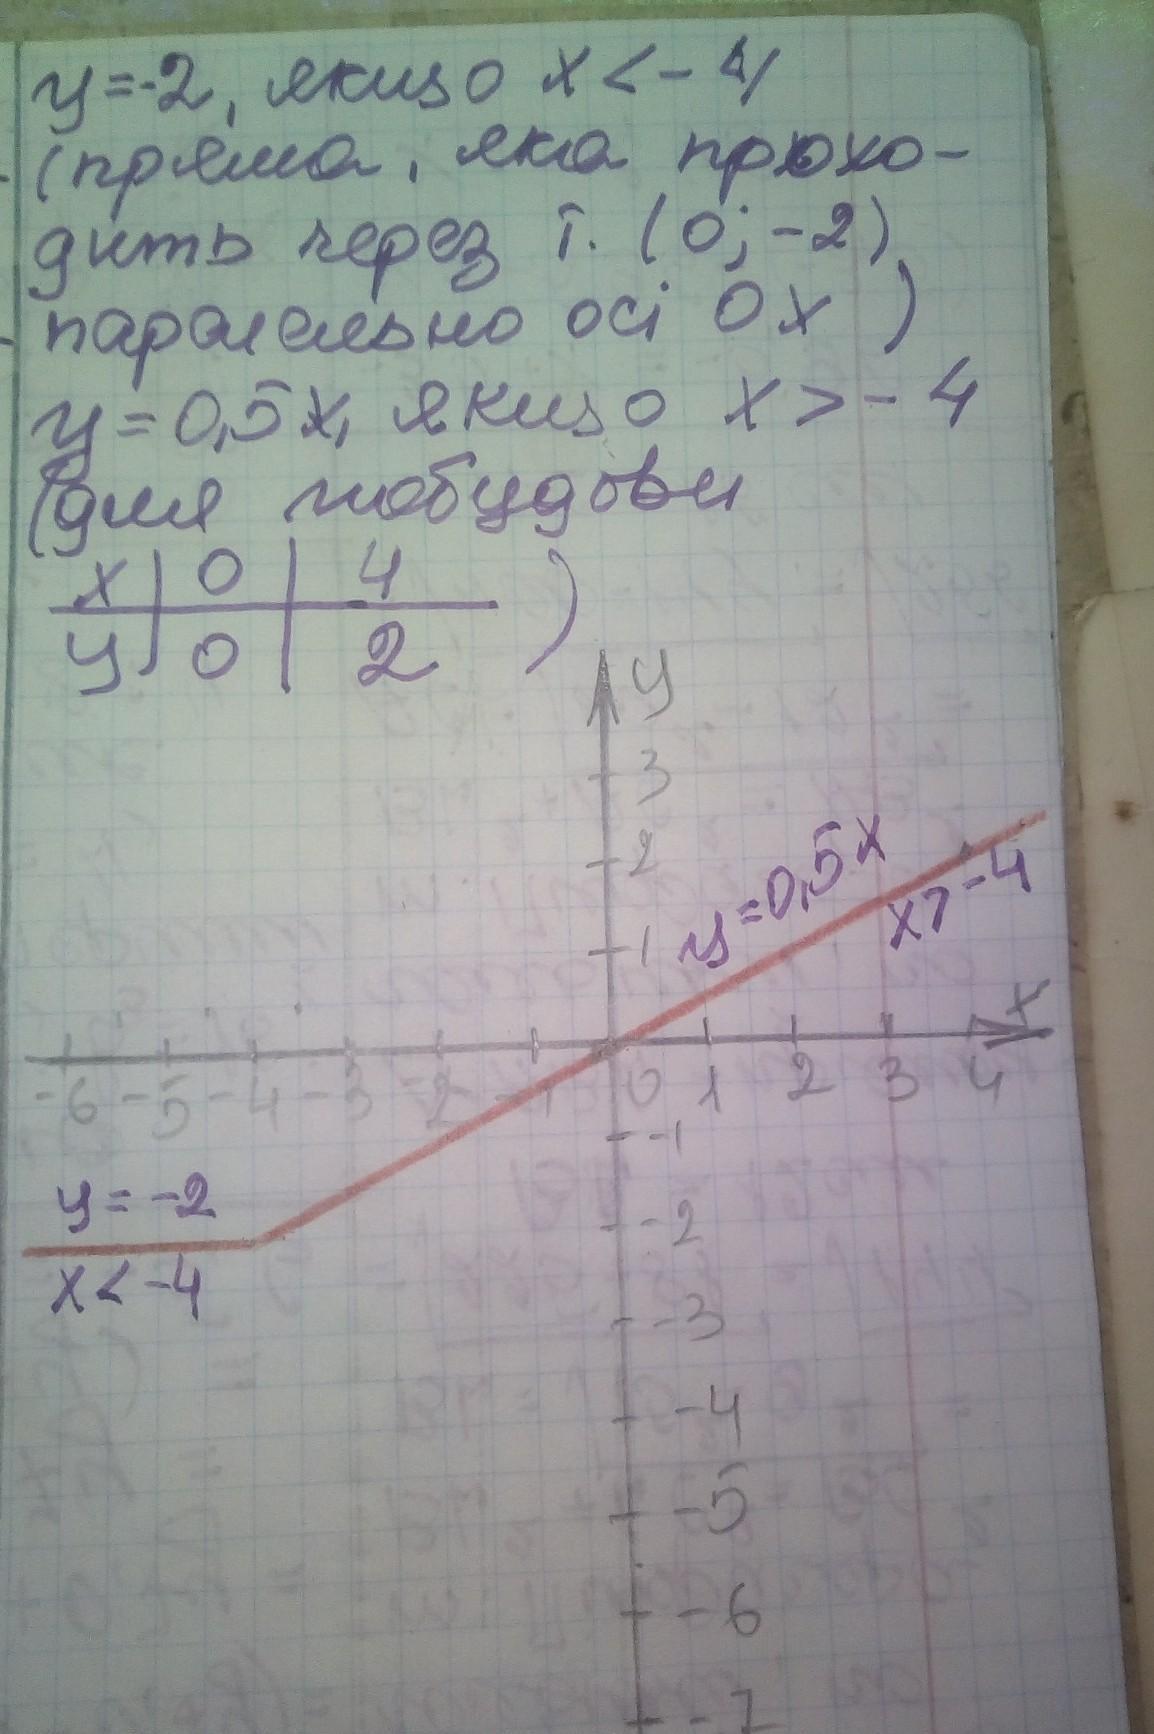 y=-2, якщо x<-4
(пряма, яка прохо-
дить через т. (0; -2)
паралельно осі 0x )
y=0,5x, якщо x>-4
(для побудови
x | 0 | 4
y | 0 | 2 )
y
3
2
y=0,5x
x>-4
1
x
-6 -5 -4 -3 -2 -1 0 1 2 3 4
-1
y=-2
-2
x<-4
-3
-4
-5
-6
-7